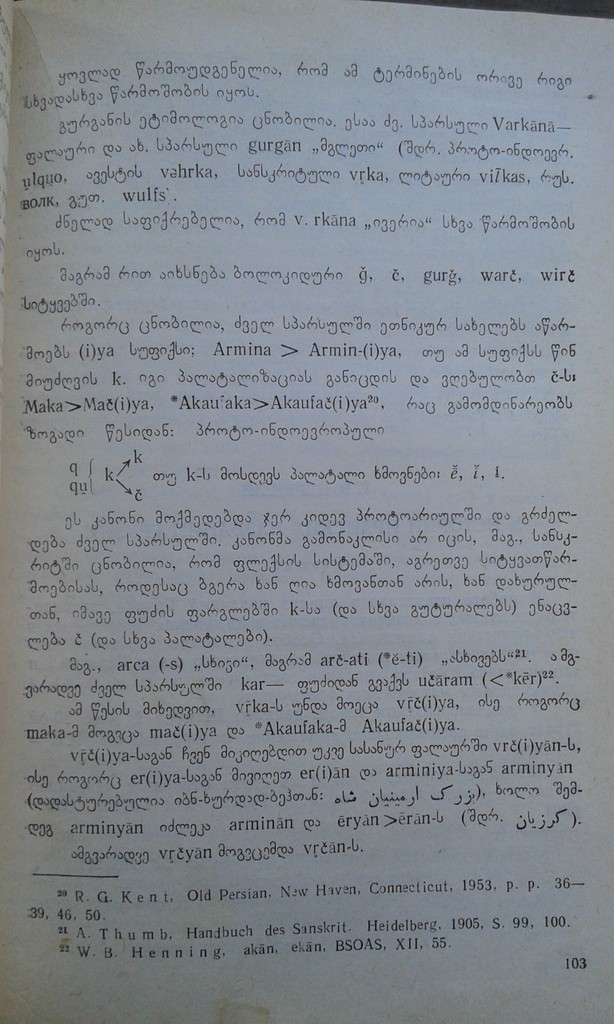 ყოვლად წარმოუდგენელია, რომ ამ ტერმინების ორივე რიგი
სხვადასხვა წარმოშობის იყოს.
გურგანის ეტიმოლოგია ცნობილია. ესაა ძვ. სპარსული Varkānā—
ფალაური და ახ. სპარსული gurgān „მგლეთი“ (შდრ. პროტო-ინდოევრ.
u̯lquo, ავესტის vəhrka, სანსკრიტული vr̥ka, ლიტაური vil̃kas, რუს.
волк, გუთ. wulfs.
ძნელად საფიქრებელია, რომ v. rkāna „ივერია“ სხვა წარმოშობის
იყოს.
მაგრამ რით აიხსნება ბოლოკიდური ǧ, č, gurǧ, warč, wirč
სიტყვებში.
როგორც ცნობილია, ძველ სპარსულში ეთნიკურ სახელებს აწარ-
მოებს (i)ya სუფიქსი: Armina > Armin-(i)ya, თუ ამ სუფიქსს წინ
მიუძღვის k. იგი პალატალიზაციას განიცდის და ვღებულობთ č-ს:
Maka>Mač(i)ya, *Akaufaka>Akaufač(i)ya²⁰, რაც გამომდინარეობს
ზოგადი წესიდან: პროტო-ინდოევროპული
q k
qu̯ k თუ k-ს მოსდევს პალატალი ხმოვნები: ē̆, ī̆, i.
č
ეს კანონი მოქმედებდა ჯერ კიდევ პროტოარიულში და გრძელ-
დება ძველ სპარსულში. კანონმა გამონაკლისი არ იცის, მაგ., სანსკ-
რიტში ცნობილია, რომ ფლექსიის სისტემაში, აგრეთვე სიტყვათწარ-
მოებისას, როდესაც ბგერა ხან ღია ხმოვანთან არის, ხან დახურულ-
თან, იმავე ფუძის ფარგლებში k-სა (და სხვა გუტურალებს) ენაცვ-
ლება č (და სხვა პალატალები).
მაგ., arca (-s) „სხივი“, მაგრამ arč-ati (*ĕ-ti) „ასხივებს“²¹. ამგ-
ვარადვე ძველ სპარსულში kar— ფუძიდან გვაქვს učāram (<*kēr)²².
ამ წესის მიხედვით, vr̥ka-ს უნდა მოეცა vr̥č(i)ya, ისე როგორც
maka-მ მოგვცა mač(i)ya და *Akaufaka-მ Akaufač(i)ya.
vr̥č(i)ya-საგან ჩვენ მიკიღებდით უკვე სასანურ ფალაურში vrč(i)yān-ს,
ისე როგორც er(i)ya-საგან მივიღეთ er(i)ān და arminiya-საგან arminyān
(დადასტურებულია იბნ-ხურდად-ბეჰთან: بزرگ ارمينيان شاه), ხოლო შემ-
დეგ arminyān იძლევა arminān და ēryān>ērān-ს (შდრ. گرزيان).
ამგვარადვე vr̥čyān მოგვცემდა vr̥čān-ს.
²⁰ R. G. Kent, Old Persian, New Haven, Connecticut, 1953, p. p. 36—
39, 46, 50.
²¹ A. Thumb, Handbuch des Sanskrit. Heidelberg, 1905, S. 99, 100.
²² W. B. Henning, akān, ekān, BSOAS, XII, 55.
103